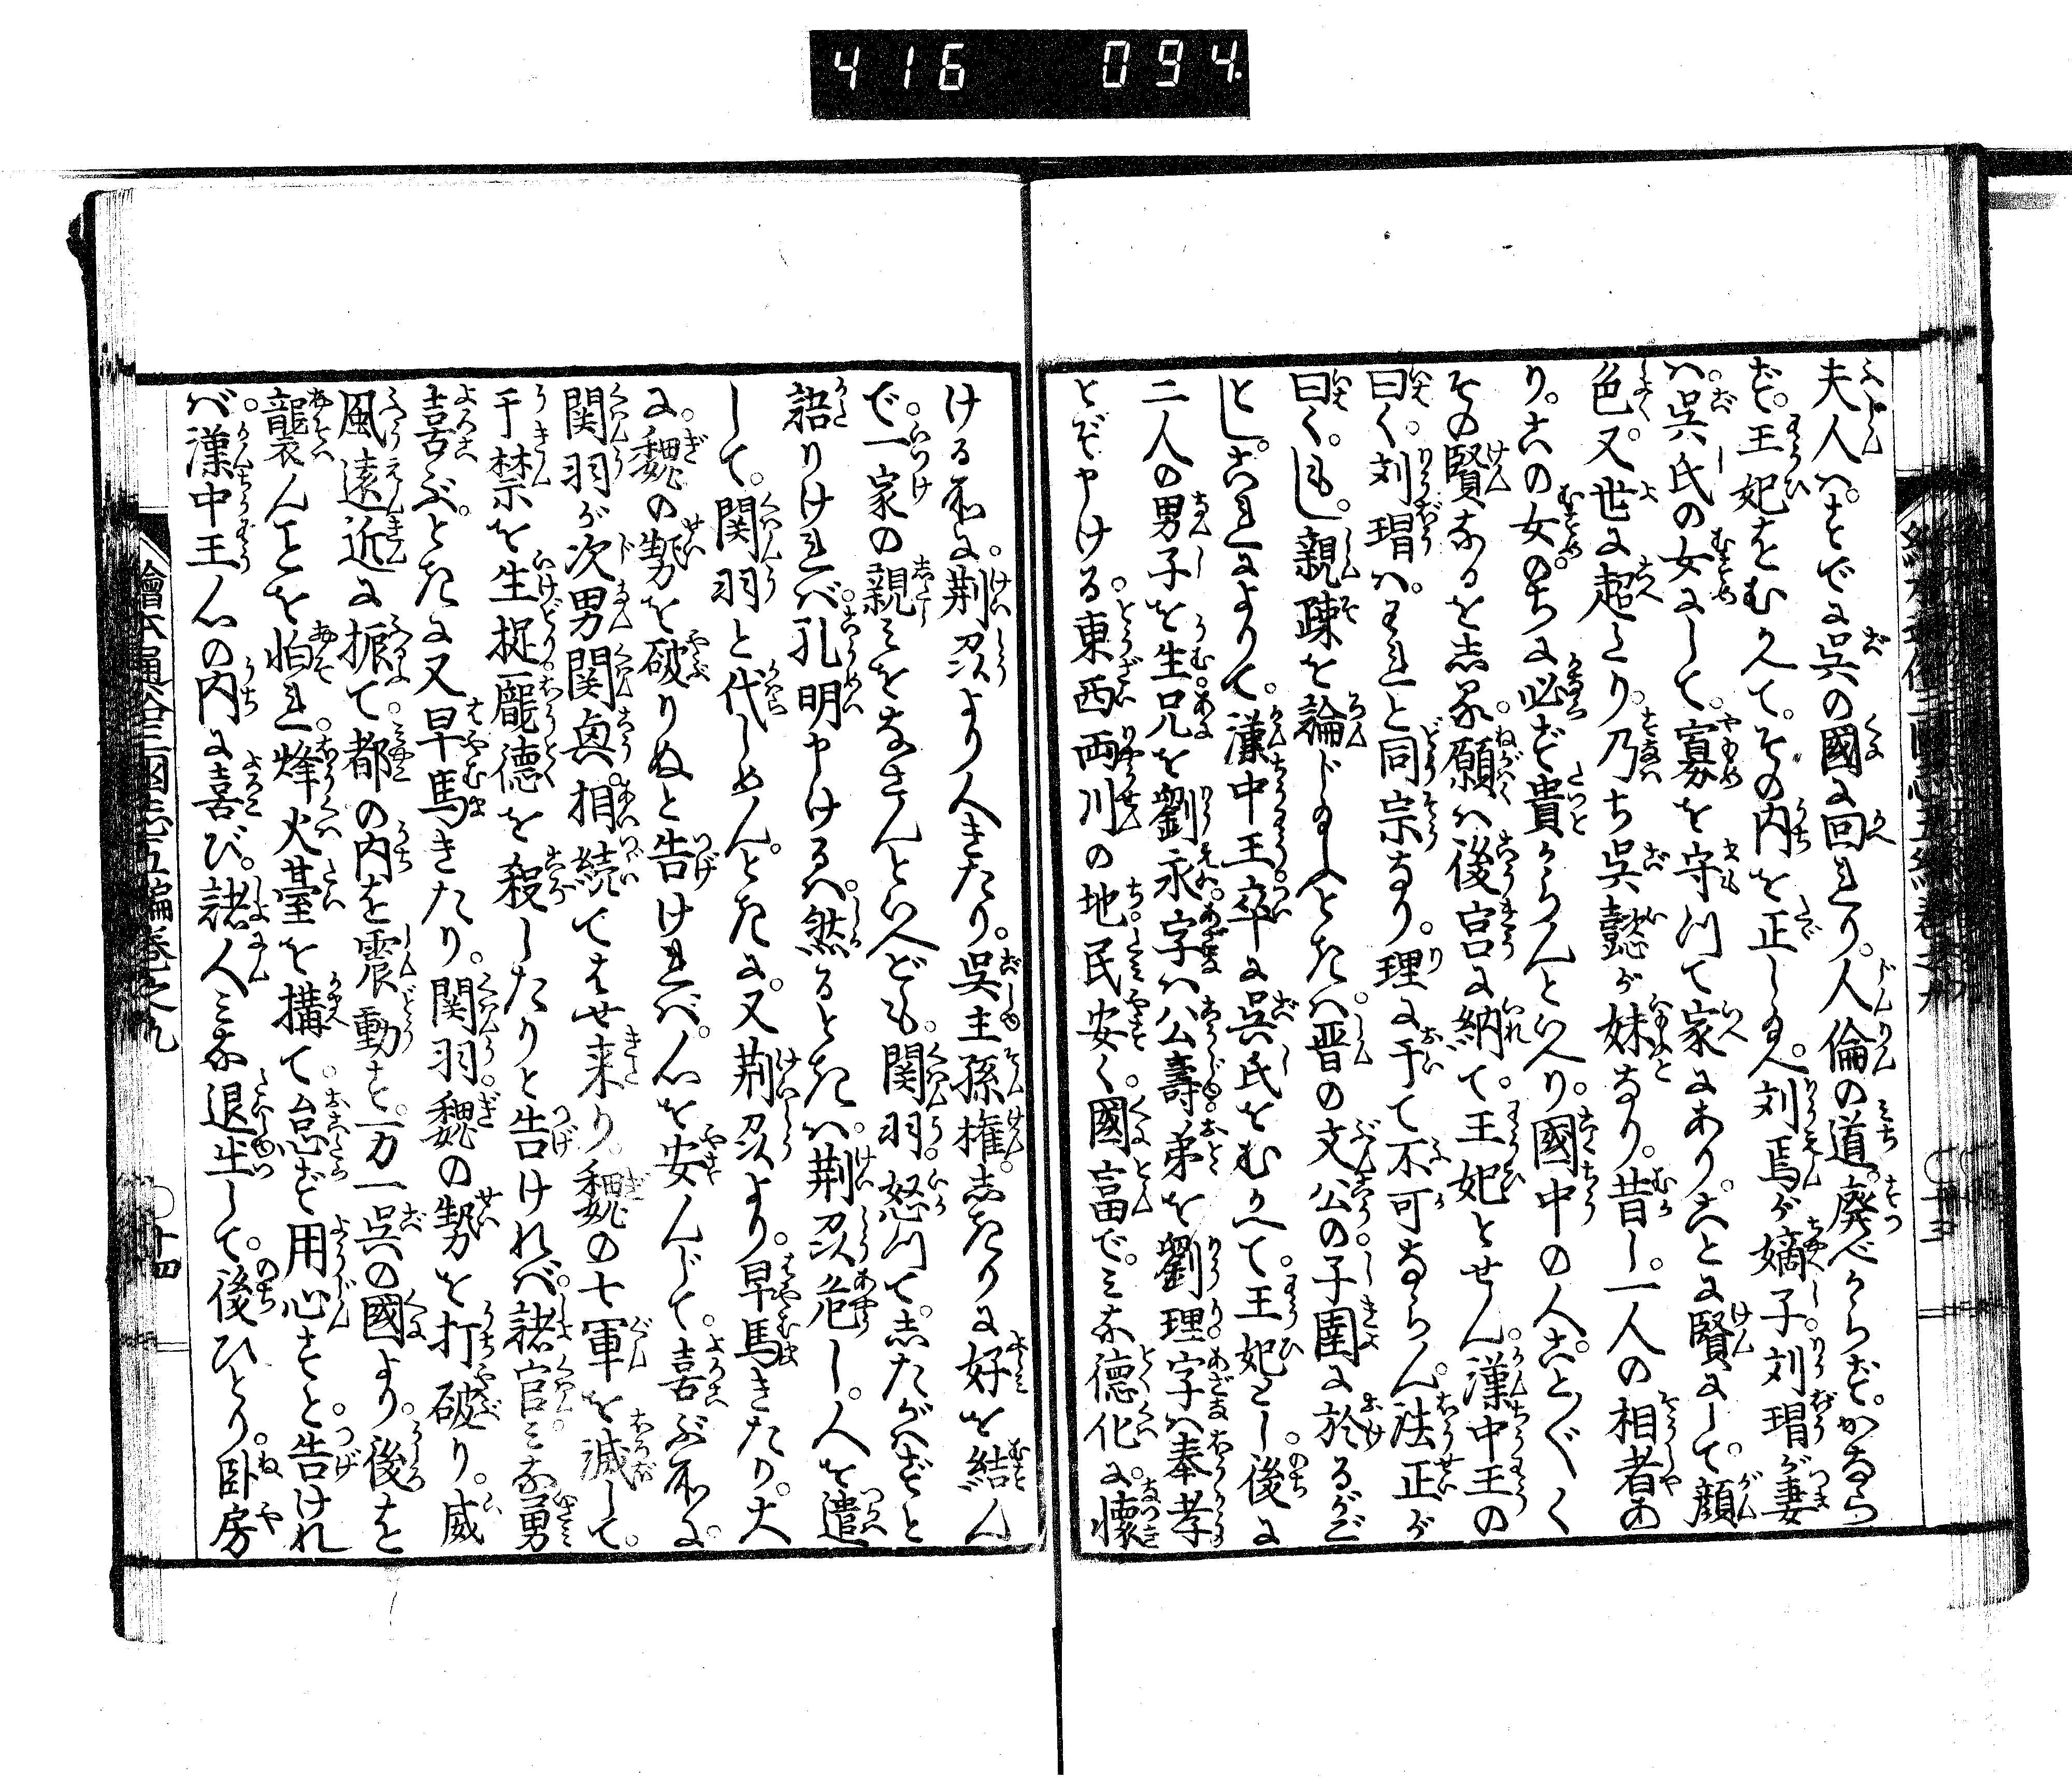 416 094.
夫人ハ。すでに呉の國に回れり。人倫の道。廃べからず。かなら
ず。王妃をむかへて。その内を正し給へ。刘焉が嫡子刘瑁が妻
ハ。呉氏の女にして。寡を守つて家にあり。ことに賢にして。顔
色。又世に超たり。乃ち呉懿が妹なり。昔し。一人の相者あ
り。この女のちに必ず貴からんといへり。國中の人。こと〴〵く
その賢なるを志る。願ハ後宮に納て。王妃とせん。漢中王の
曰く。刘瑁ハ。われと同宗なり。理に于て不可ならん。法正が
曰く。もし。親疎を論じ給ふときハ。晋の文公の子圉に於るがご
とし。これによりて。漢中王卒に呉氏をむかへて。王妃とし。後に
二人の男子を生。兄を劉永字ハ公壽。弟を劉理字ハ奉孝
とぞ申ける。東西両川の地。民安く。國富で。ミな德化に懷
ける所に。荆州より人きたり。呉主孫権。志きりに好を結ん
で。一家の親ミをなさんといへども。関羽。怒つて。志たがハずと
語りけれバ。孔明申けるハ。然るときハ。荆州危し。人を遣
して。関羽と代しめんときに。又荆州より。早馬きたり。大
に。魏の㔟を破りぬと告けれバ。心を安んじて。喜ぶ所に。
関羽が次男関興。相続てはせ来り。魏の七軍を滅して。
于禁を生捉。龐德を殺したりと告けれバ。諸官ミな勇
喜ぶ。ときに又早馬きたり。関羽。魏の㔟を打破り。威
風遠近に振て。都の内を震動す。万一呉の國より。後を
襲んことを怕れ。烽火臺を構て。怠ず用心すと。告けれ
バ。漢中王心の内に喜び。諸人ミな退出して。後ひとり。卧房
繪本通俗三國志五編巻之九
十四